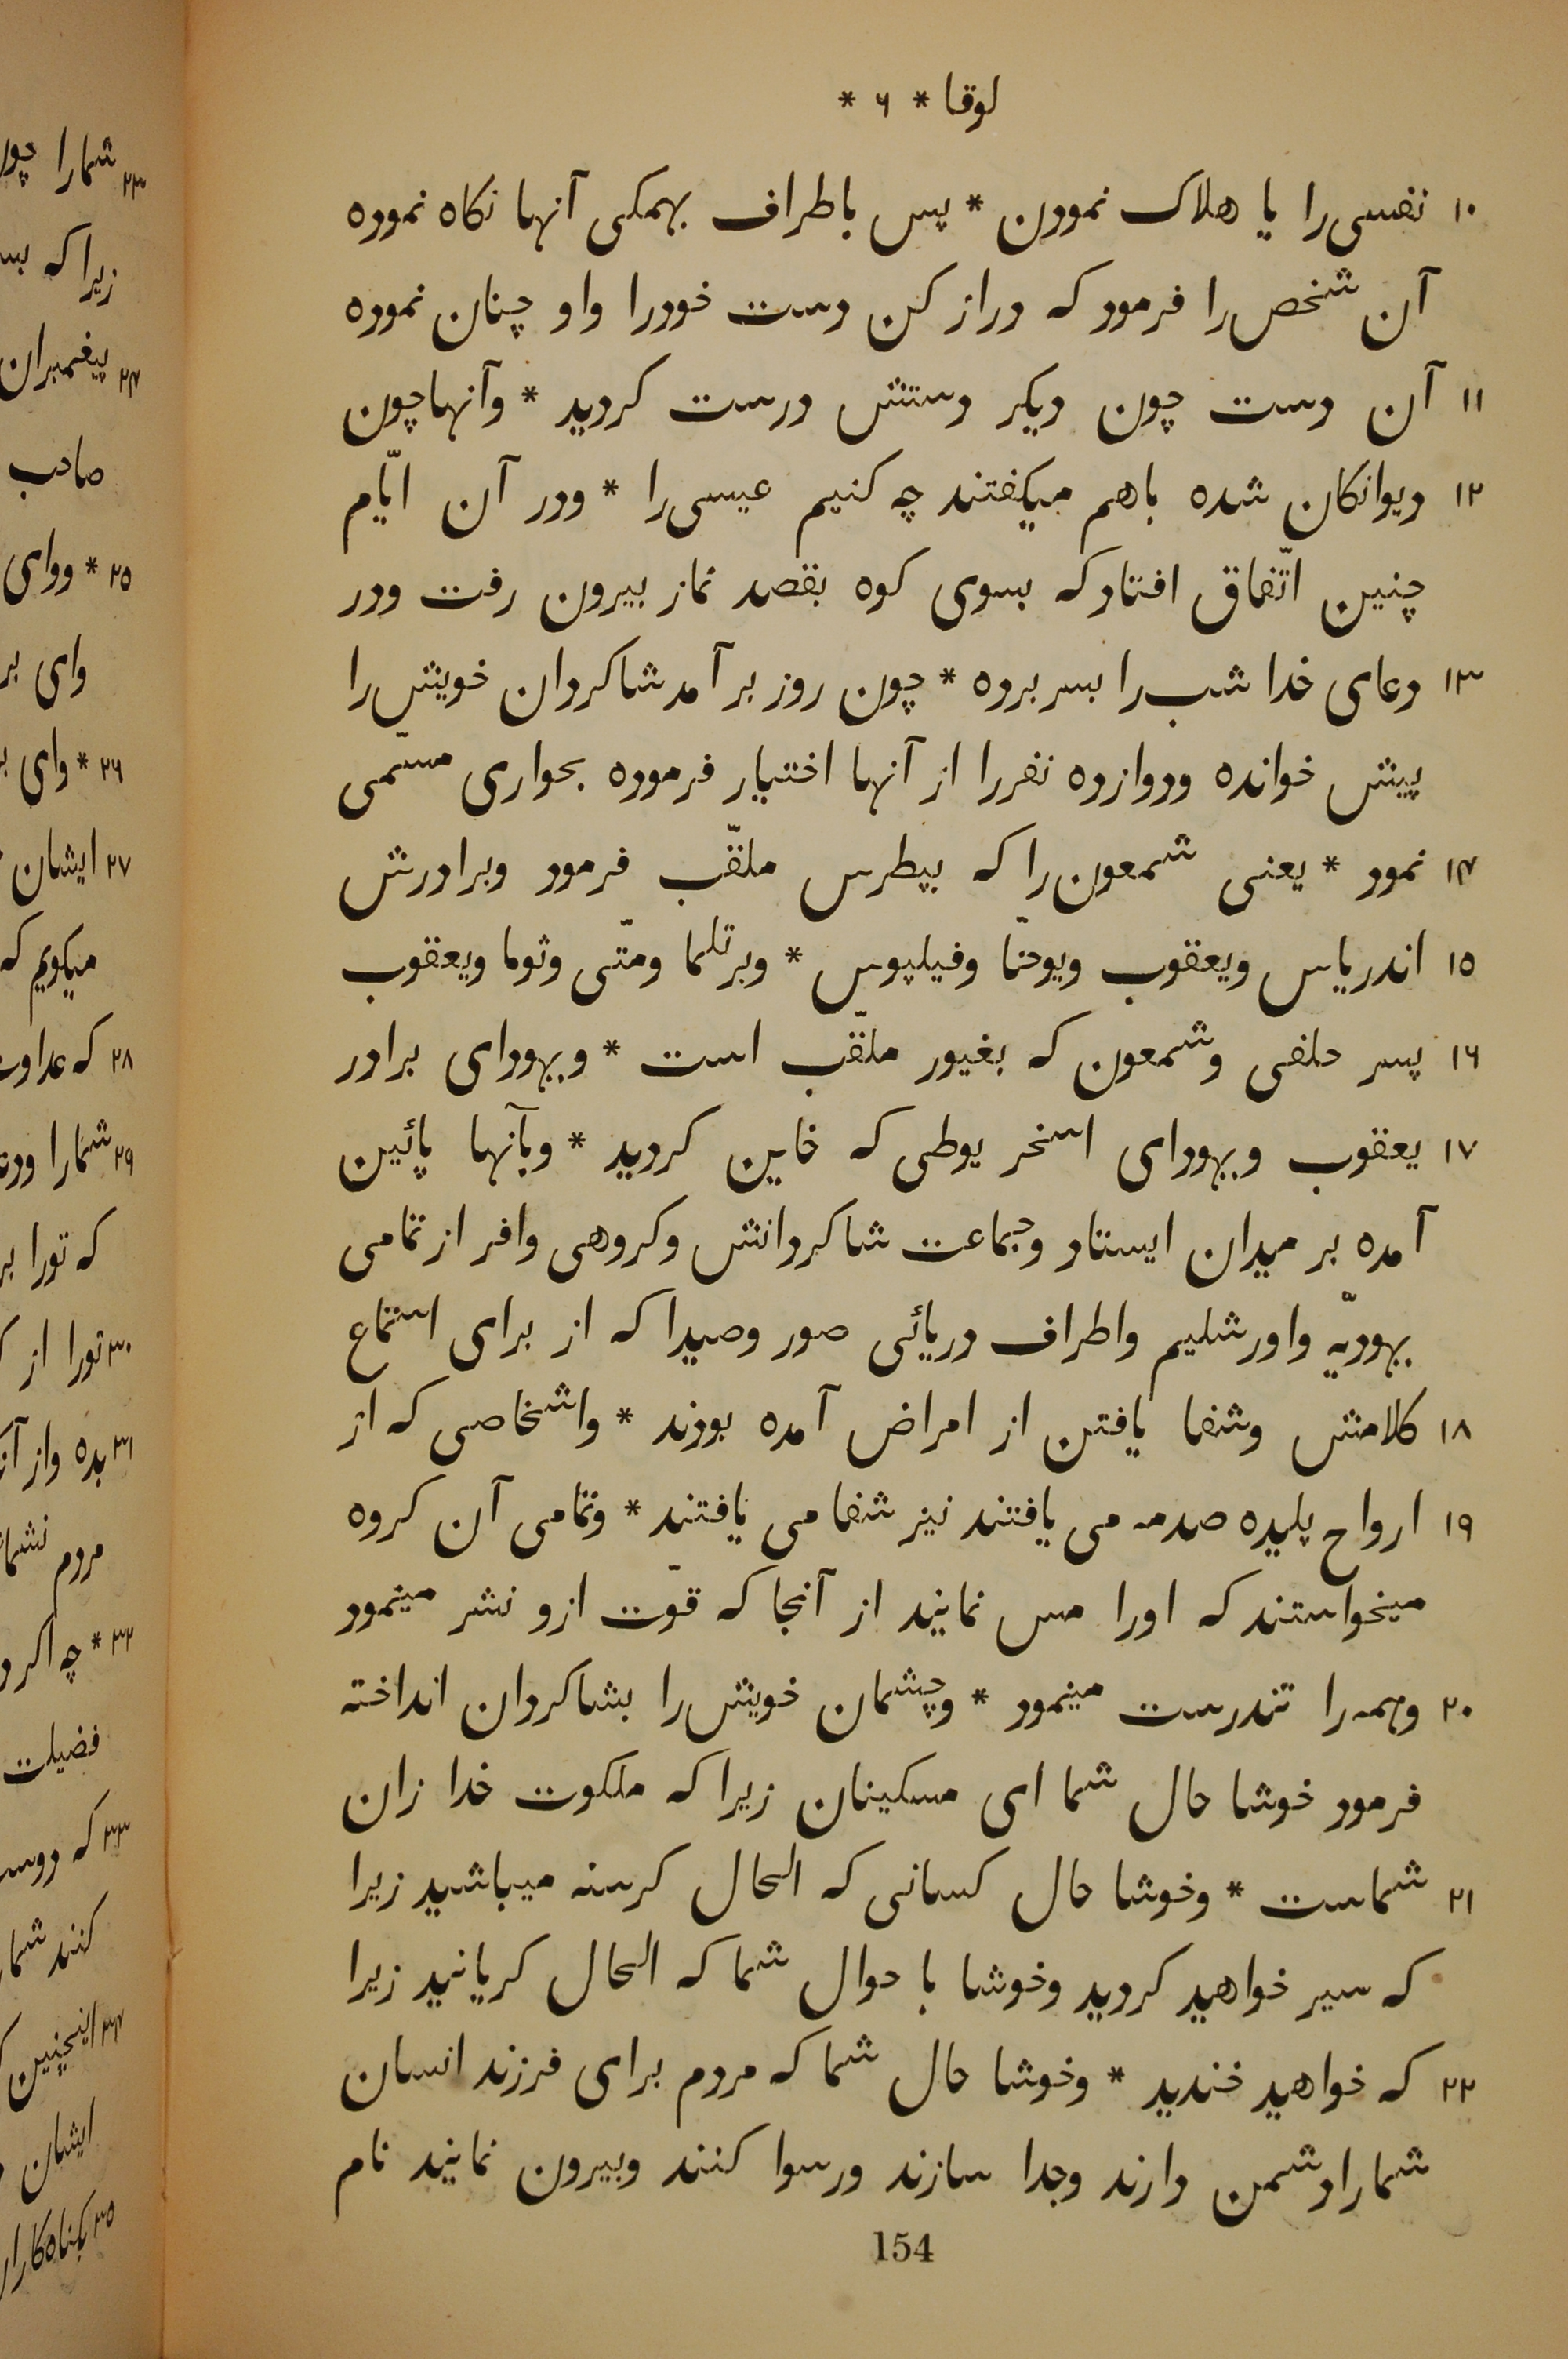 لوقا * ٦ *
١٠ نفسی را یا هلاک نمودن * پس باطراف بهمکی آنها نکاه نموده
آن شخص را فرمود که دراز کن دست خودرا واو چنان نموده
١١ آن دست چون دیکر دستش درست کردید * وآنها چون
١٢ دیوانکان شده باهم میکفتند چه کنیم عیسی را * ودر آن ایّام
چنین اتّفاق افتاد که بسوی کوه بقصد نماز بیرون رفت ودر
١٣ دعای خدا شب را بسر برده * چون روز بر آمد شاکردان خویش را
پیش خوانده ودوازده نفررا از آنها اختیار فرموده بحواری مسّمی
١۴ نمود * یعنی شمعون را که بپطرس ملقّب فرمود وبرادرش
١٥ اندریاس ویعقوب ویوحنّا وفیلپوس * وبرتلما ومتّی وثوما ویعقوب
١٦ پسر حلفی وشمعون که بغیور ملقّب است * ویهودای برادر
١٧ یعقوب ویهودای اسخر یوطی که خاین کردید * وبآنها پائین
آمده بر میدان ایستاد وجماعت شاکردانش وکروهی وافر از تمامی
یهودیّه واورشلیم واطراف دریائی صور وصیدا که از برای استماع
١٨ کلامش وشفا یافتن از امراض آمده بودند * واشخاصی که از
١٩ ارواح پلیده صدمه می یافتند نیز شفا می یافتند * وتمامی آن کروه
میخواستند که اورا مس نمایند از آنجا که قوّت ازو نشر مینمود
٢٠ وهمه را تندرست مینمود * وچشمان خویش را بشاکردان انداخته
فرمود خوشا حال شما ای مسکینان زیرا که ملکوت خدا زان
٢١ شماست * وخوشا حال کسانی که الحال کرسنه میباشید زیرا
که سیر خواهید کردید وخوشا با حوال شما که الحال کریانید زیرا
٢٢ که خواهید خندید * وخوشا حال شما که مردم برای فرزند انسان
شمارا دشمن دارند وجدا سازند ورسوا کنند وبیرون نمایند نام
154
٢٣ شمارا
زیرا که
٢۴ پیغمبران
صاحب
٢٥ * ووای
وای
٢٦ * وای
٢٧ ایشان
میکویم که
٢٨ که
٢٩ شمارا
که تورا
٣٠ تورا از
٣١ بده واز
مردم
٣٢ * چه اکر
فضیلت
٣٣ که
کنند
٣۴ اینچنین
ایشان
٣٥